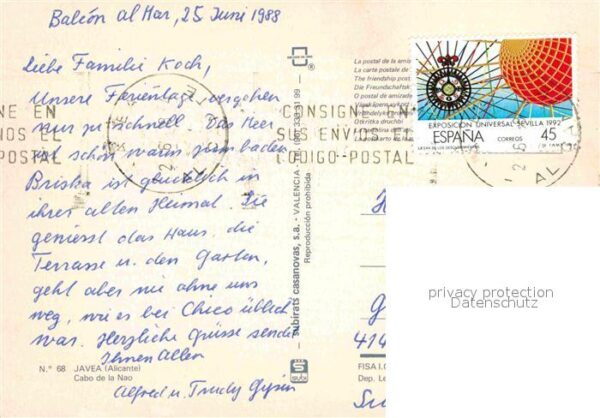 Balcón al Mar, 25 Juni 1988
Liebe Familie Koch,
Unsere Ferientage vergehen
nur zu schnell. Das Meer
ist schön warm zum baden
Briska ist glücklich in
ihrer alten Heimat. Sie
geniesst das Haus, die
Terrasse u. den Garten,
geht aber nie ohne uns
weg, wie es bei Chico üblich
war. Herzliche Grüsse sendet
Ihnen Allen
Alfred u. Trudy Gysin
N.º 68 JAVEA (Alicante)
Cabo de la Nao
subirats casanovas, s.a. - VALENCIA
Reproducción prohibida
subi
La postal de la amis
La carte postale de
The friendship post
Die Freundschafts
O postal de amizade
CONSIGNE EN
SUS ENVIOS EL
CODIGO-POSTAL
NE EN
NOS EL
POSTAL
EXPOSICION UNIVERSAL SEVILLA 1992
ESPAÑA CORREOS 45
414
FISA I.G
Dep. Le
privacy protection
Datenschutz